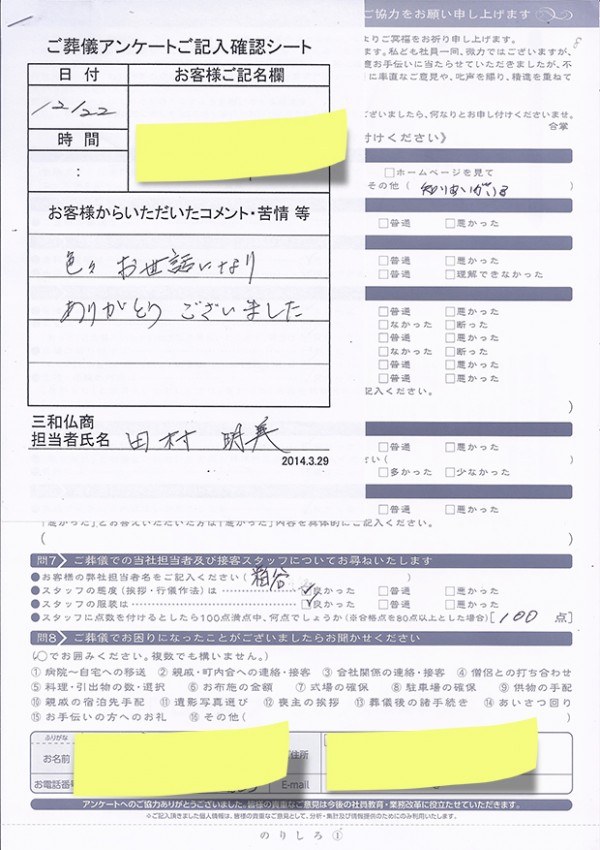 ご協力をお願い申し上げます
8
よりご冥福をお祈り申し上げます。
ます。私ども社員一同、微力ではございますが、
意お手伝いに当たらせていただきましたが、不
に率直なご意見や、叱声を賜り、精進を重ねて
ございましたら、何なりとお申し付けくださいませ。
合掌
付けください》
□ホームページを見て
その他(知りあいがいる
□普通 □悪かった
□普通 □悪かった
□普通 □理解できなかった
□普通 □悪かった
□なかった □断った
□普通 □悪かった
□なかった □断った
□普通 □悪かった
□普通 □悪かった
記入ください。
)
□普通 □悪かった
さい(
□多かった □少なかった
□普通 □悪かった
ご葬儀アンケートご記入確認シート
日付 お客様ご記名欄
12/22
時間
:
お客様からいただいたコメント・苦情 等
色々 お世話になり
ありがとう ございました
三和仏商
担当者氏名 田村 明美
2014.3.29
「悪かった」とお答えいただいた方は「悪かった」内容を具体的にご記入ください。
( )
問7 ご葬儀での当社担当者及び接客スタッフについてお尋ねいたします
●お客様の弊社担当者名をご記入ください(粕谷 )
●スタッフの態度(挨拶・行儀作法)は □良かった □普通 □悪かった
●スタッフの服装は □良かった □普通 □悪かった
●スタッフに点数を付けるとしたら100点満点中、何点でしょうか(※合格点を80点以上とした場合)[100 点]
問8 ご葬儀でお困りになったことがございましたらお聞かせください
(○でお囲みください。複数でも構いません。)
①病院〜自宅への移送 ②親戚・町内会への連絡・接客 ③会社関係の連絡・接客 ④僧侶との打ち合わせ
⑤料理・引出物の数・選択 ⑥お布施の金額 ⑦式場の確保 ⑧駐車場の確保 ⑨供物の手配
⑩親戚の宿泊先手配 ⑪遺影写真選び ⑫喪主の挨拶 ⑬葬儀後の諸手続き ⑭あいさつ回り
⑮お手伝いの方へのお礼 ⑯その他( )
ふりがな
お名前
ご住所
お電話番号
E-mail
アンケートへのご協力ありがとうございました。皆様の貴重なご意見は今後の社員教育・業務改革に役立たせていただきます。
※ご記入頂きました個人情報は、皆様の貴重なご意見として、分析・集計及び情報提供のためにのみ利用いたします。
のりしろ①